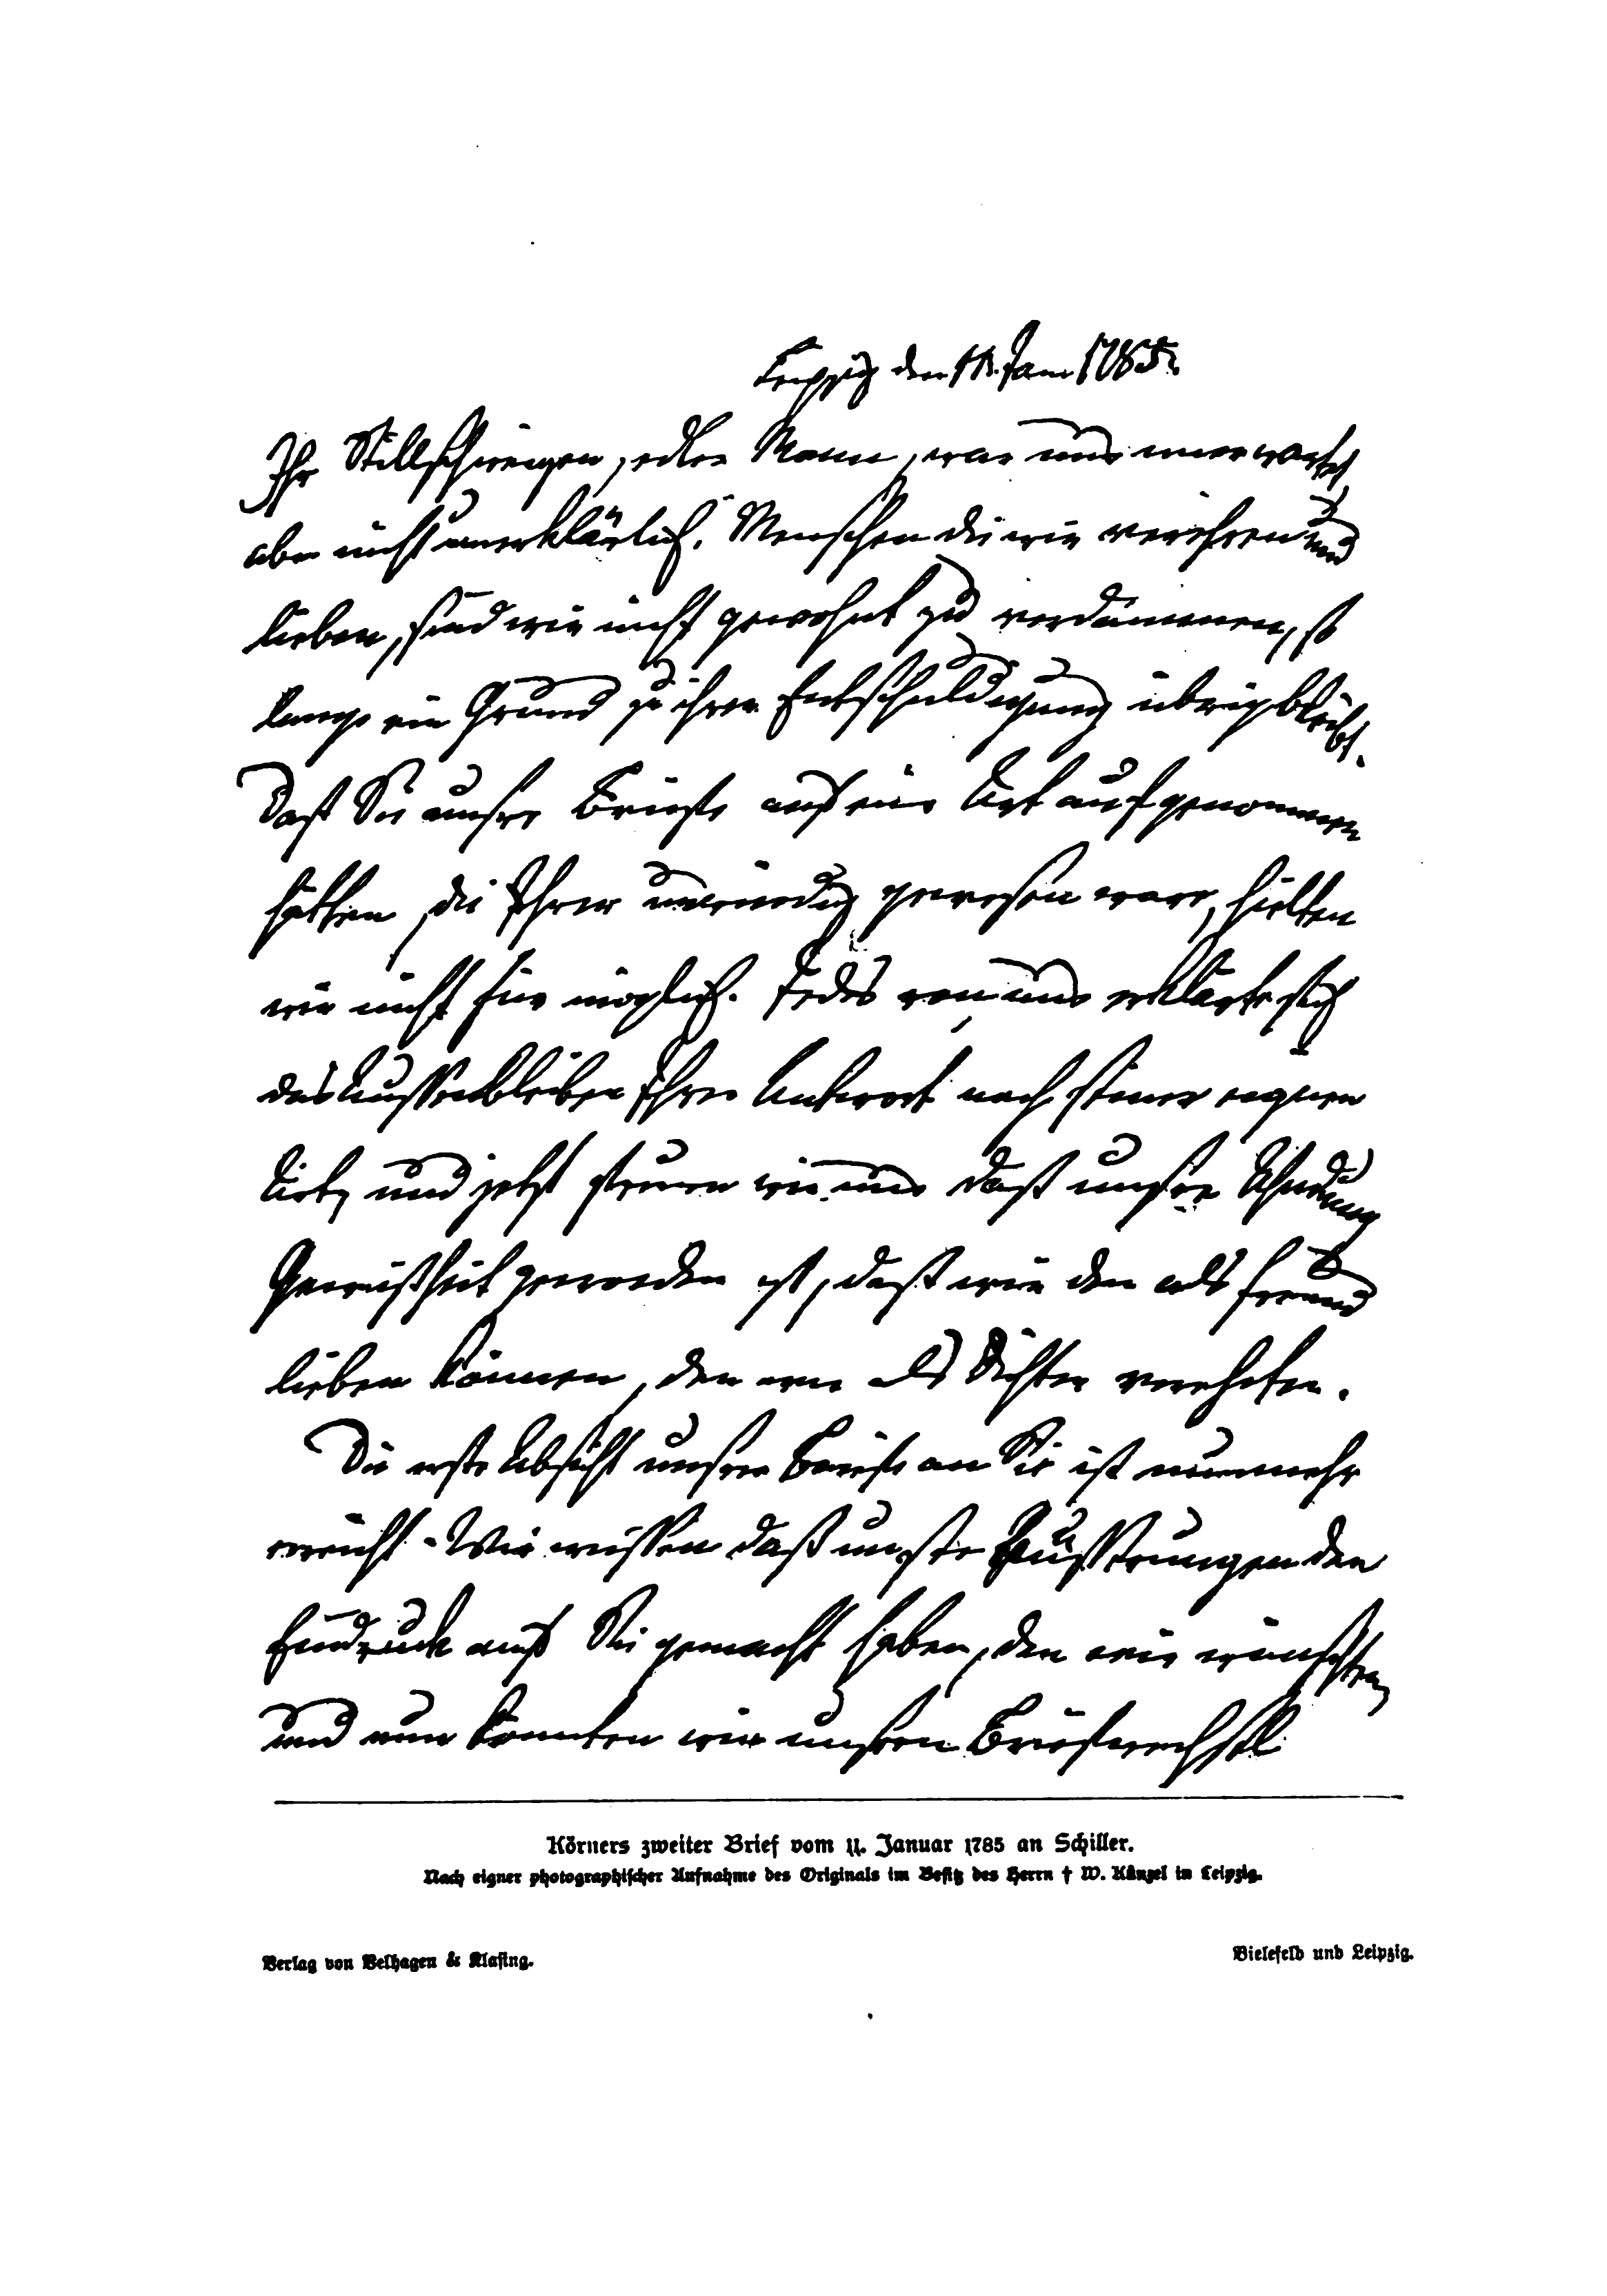 Leipzig den 11. Jan. 1785.
Ihr Stillschweigen, edler Mann, war uns unerwartet
aber nicht unerklärlich. Menschen die wir verehren und
lieben, sind wir nicht gewohnt zu verdammen, so
lange ein Grund zu ihrer Entschuldigung übrig bleibt.
Daß Sie unsre Briefe auf eine Art aufgenommen
hätten, die Ihrer unwürdig gewesen ware, hielten
wir nicht für möglich. Jedes von uns erklärte sich
das Aussenbleiben Ihrer Antwort nach seiner eignen
Art, und jetzt freuen wir uns daß unsre Ahndung
Gewißheit geworden ist, daß wir den als Freund
lieben können, den wir als Dichter verehrten.
Die erste Absicht unsrer Briefe an Sie ist nunmehr
erreicht. Wir wissen daß unsre Äusserungen den
Eindruck auf Sie gemacht haben, den wir wünschten,
und nun könnten wir unsern Briefwechsel
Körners zweiter Brief vom 11. Januar 1785 an Schiller.
Nach eigner photographischer Aufnahme des Originals im Besitz des Herrn † W. Künzel in Leipzig.
Verlag von Velhagen & Klasing.
Bielefeld und Leipzig.